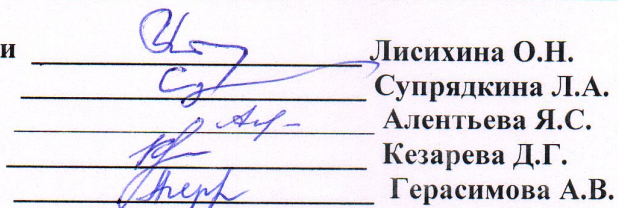 и Лисихина О.Н.
Супрядкина Л.А.
Алентьева Я.С.
Кезарева Д.Г.
Герасимова А.В.